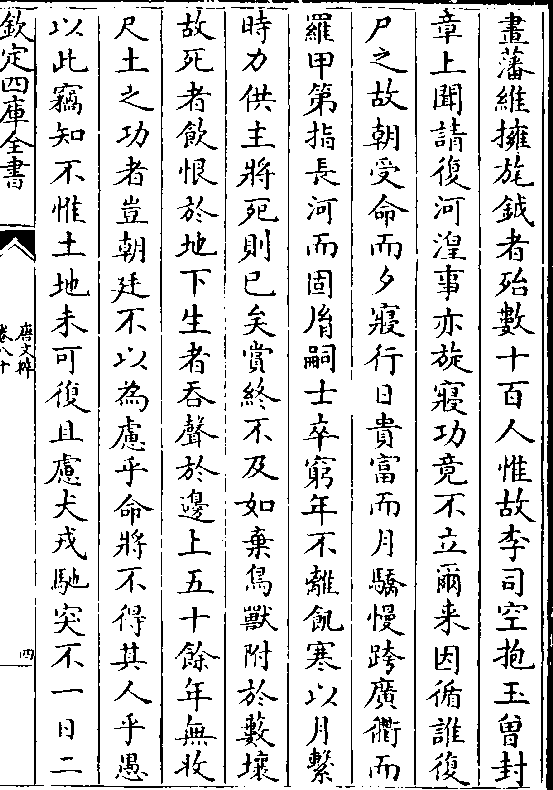 畫藩維擁旄鉞者殆數十百人惟故李司空抱玉曾封
章上聞請復河湟事亦旋寢功竟不立爾来因循誰復
尸之故朝受命而夕寢行日貴富而月驕慢跨廣衢而
羅甲第指長河而固胤嗣士卒窮年不離飢寒以月繫
時力供主將死則已矣賞終不及如棄鳥獸附於藪壤
故死者飲恨於地下生者吞聲於邊上五十餘年無收
尺土之功者豈朝廷不以為慮乎命將不得其人乎愚
以此竊知不惟土地未可復且慮犬戎馳突不一日二
欽定四庫全書
唐文粹
卷八十
四